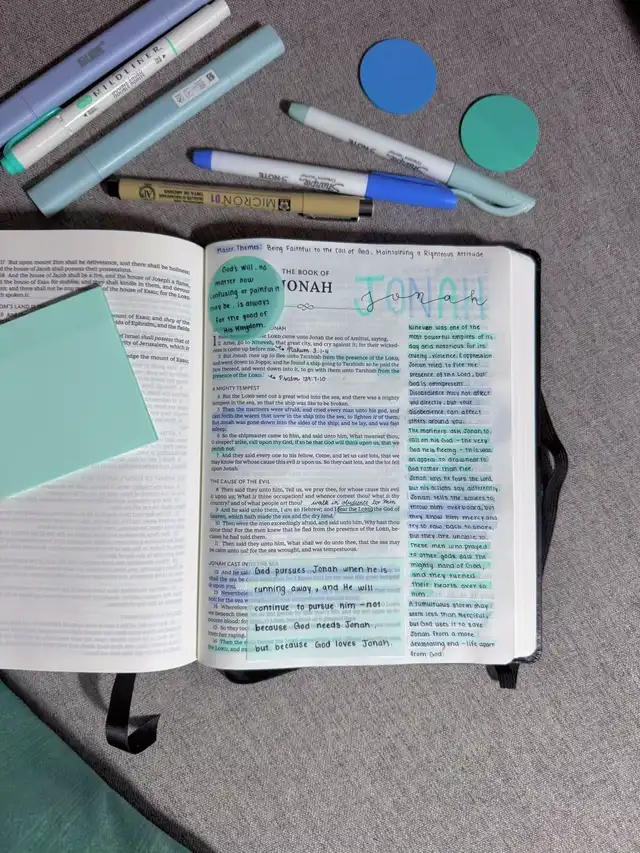 MILDLINER
Sharpie
S·NOTE
Sharpie
S·NOTE
MICRON 01
Major Themes: Being Faithful to the call of God, Maintaining a Righteous Attitude
God's will, no
matter how
confusing or painful it
may be, is always
for the good of
His Kingdom.
THE BOOK OF
JONAH
JONAH
Jonah
came unto Jonah the son of Amittai, saying,
2 Arise, go to Nineveh, that great city, and cry against it; for their wicked-
ness is come up before me. Nahum 3:1-4
3 But Jonah rose up to flee unto Tarshish from the presence of the LORD,
and went down to Joppa; and he found a ship going to Tarshish: so he paid the
fare thereof, and went down into it, to go with them unto Tarshish from the
presence of the LORD. Psalm 139:7-10
A MIGHTY TEMPEST
4 But the LORD sent out a great wind into the sea, and there was a mighty
tempest in the sea, so that the ship was like to be broken.
5 Then the mariners were afraid, and cried every man unto his god, and
cast forth the wares that were in the ship into the sea, to lighten it of them.
But Jonah was gone down into the sides of the ship; and he lay, and was fast
asleep.
6 So the shipmaster came to him, and said unto him, What meanest thou,
O sleeper? arise, call upon thy God, if so be that God will think upon us, that we
perish not.
7 And they said every one to his fellow, Come, and let us cast lots, that we
may know for whose cause this evil is upon us. So they cast lots, and the lot fell
upon Jonah.
THE CAUSE OF THE EVIL
8 Then said they unto him, Tell us, we pray thee, for whose cause this evil
is upon us; What is thine occupation? and whence comest thou? what is thy
country? and of what people art thou? walk in obedience to Him
9 And he said unto them, I am an Hebrew; and I fear the LORD, the God of
heaven, which hath made the sea and the dry land.
10 Then were the men exceedingly afraid, and said unto him, Why hast thou
done this? For the men knew that he fled from the presence of the LORD, be-
cause he had told them.
11 Then said they unto him, What shall we do unto thee, that the sea
may be calm unto us? for the sea wrought, and was tempestuous.
JONAH CAST INTO THE SEA
God pursues Jonah when he is
running away, and He will
continue to pursue him - not
because God needs Jonah,
but because God loves Jonah.
Nineveh was one of the
most powerful empires of its
day and notorious for its
cruelty, violence, & oppression.
Jonah tried to flee the
presence of the Lord, but
God is omnipresent.
Disobedience may not affect
us directly, but that
disobedience can affect
others around you.
The mariners ask Jonah to
call on his God - the very
God he is fleeing - this was
an appeal to draw near to
God rather than flee.
Jonah says he fears the Lord,
but his actions say differently.
Jonah tells the sailors to
throw him overboard, but
they show him mercy and
try to row back to shore,
but they are unable to.
These men who prayed
to other gods saw the
mighty hand of God,
and they turned
their hearts over to
him.
A tumultuous storm may
seem less than merciful,
but God uses it to save
Jonah from a more
devastating end - life apart
from God.
17 But upon mount Zion shall be deliverance, and there shall be holiness;
and the house of Jacob shall possess their possessions.
18 And the house of Jacob shall be a fire, and the house of Joseph a flame,